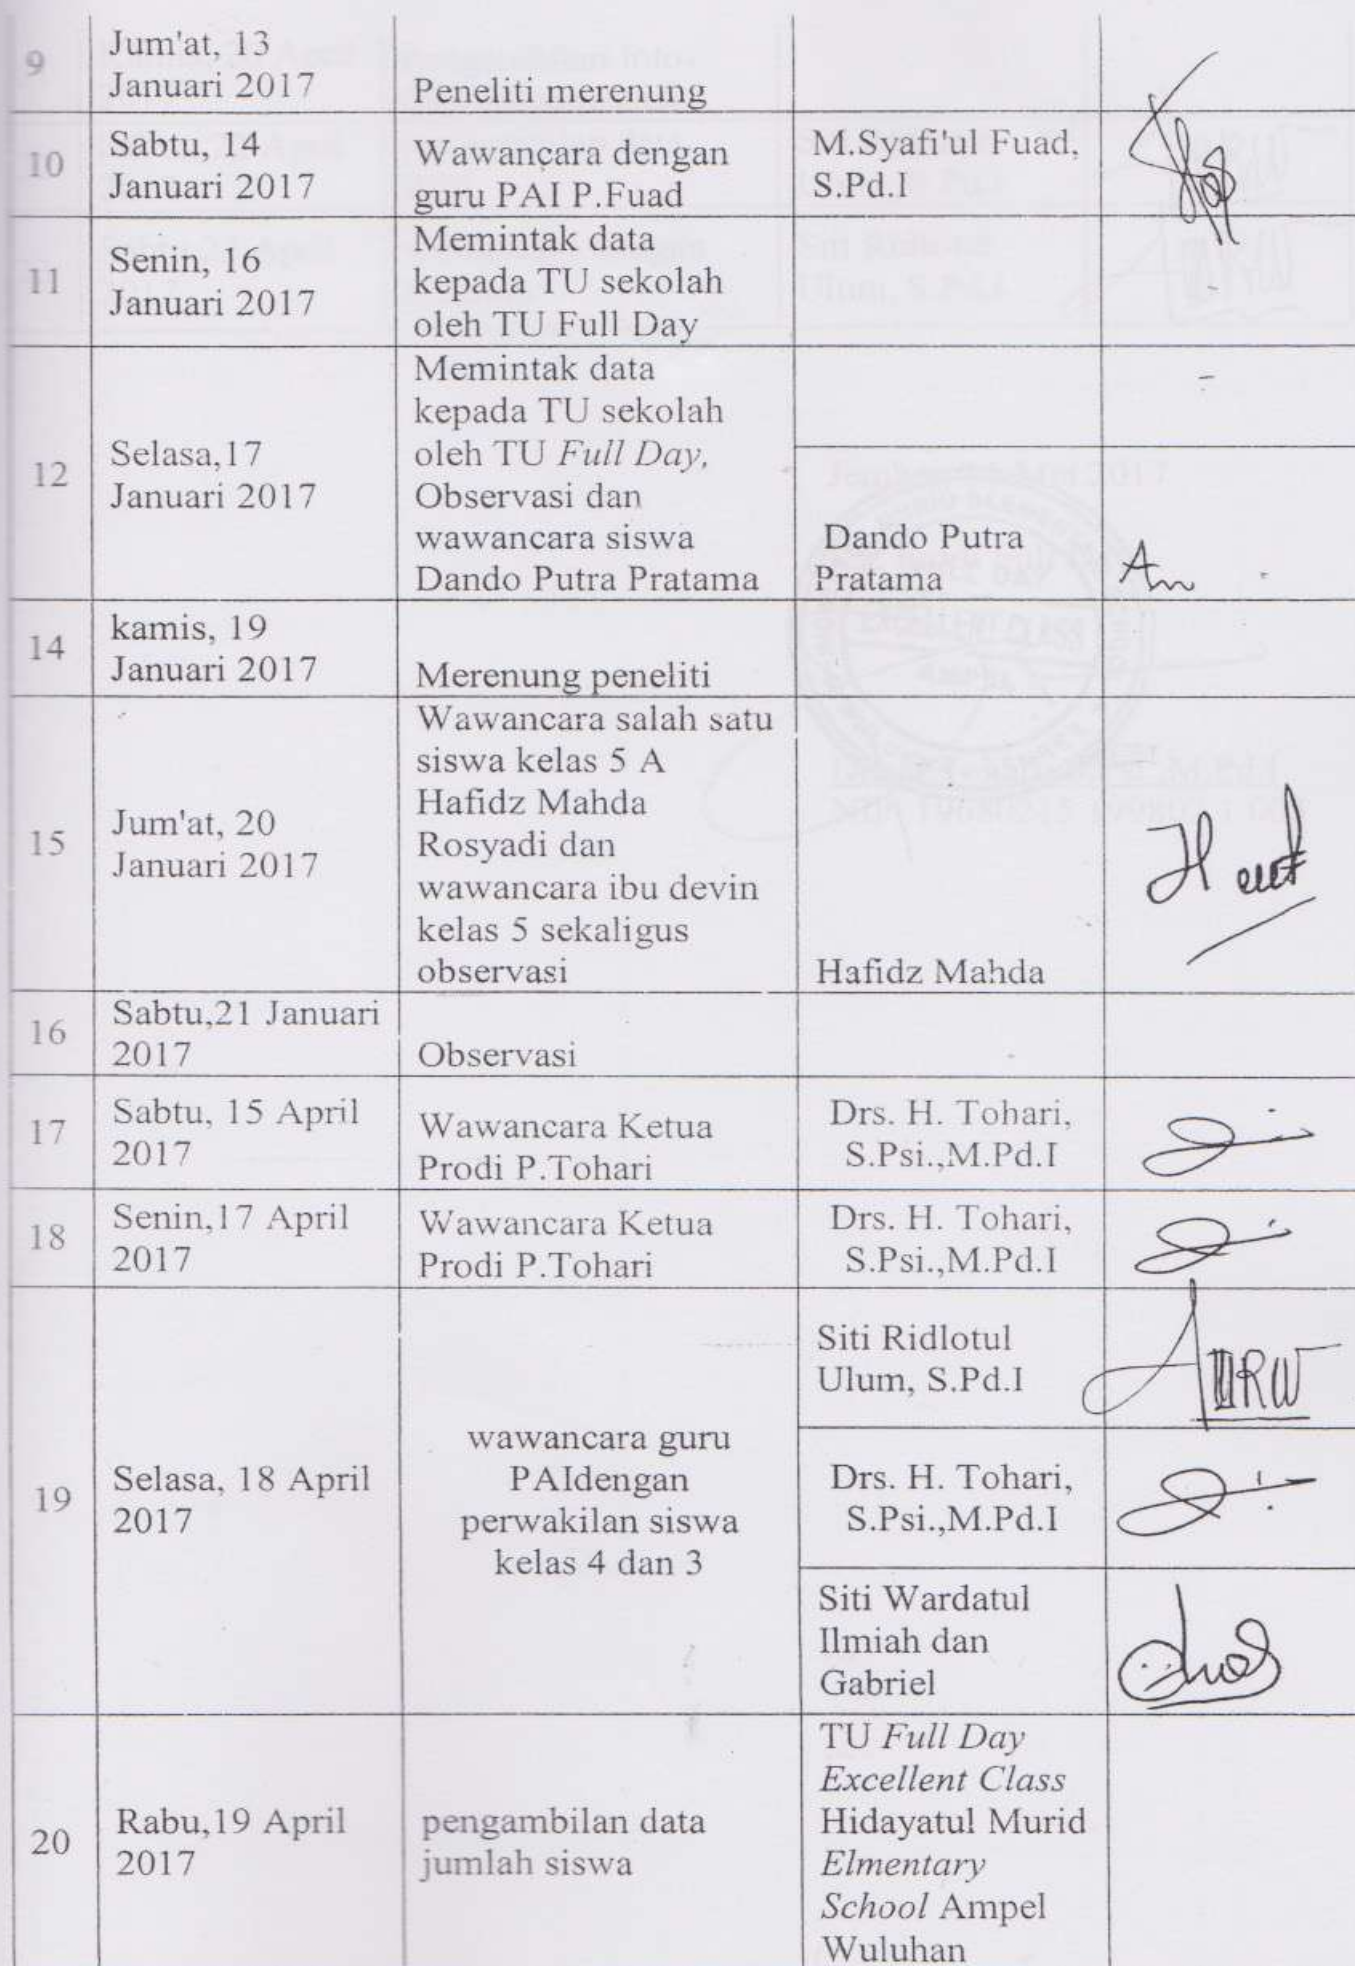 9
Jum'at, 13
Januari 2017
Peneliti merenung
10
Sabtu, 14
Januari 2017
Wawancara dengan
guru PAI P.Fuad
M.Syafi'ul Fuad,
S.Pd.I
11
Senin, 16
Januari 2017
Memintak data
kepada TU sekolah
oleh TU Full Day
12
Selasa,17
Januari 2017
Memintak data
kepada TU sekolah
oleh TU Full Day,
Observasi dan
wawancara siswa
Dando Putra Pratama
Dando Putra
Pratama
14
kamis, 19
Januari 2017
Merenung peneliti
15
Jum'at, 20
Januari 2017
Wawancara salah satu
siswa kelas 5 A
Hafidz Mahda
Rosyadi dan
wawancara ibu devin
kelas 5 sekaligus
observasi
Hafidz Mahda
16
Sabtu,21 Januari
2017
Observasi
17
Sabtu, 15 April
2017
Wawancara Ketua
Prodi P.Tohari
Drs. H. Tohari,
S.Psi.,M.Pd.I
18
Senin,17 April
2017
Wawancara Ketua
Prodi P.Tohari
Drs. H. Tohari,
S.Psi.,M.Pd.I
19
Selasa, 18 April
2017
wawancara guru
PAIdengan
perwakilan siswa
kelas 4 dan 3
Siti Ridlotul
Ulum, S.Pd.I
Drs. H. Tohari,
S.Psi.,M.Pd.I
Siti Wardatul
Ilmiah dan
Gabriel
20
Rabu,19 April
2017
pengambilan data
jumlah siswa
TU Full Day
Excellent Class
Hidayatul Murid
Elmentary
School Ampel
Wuluhan